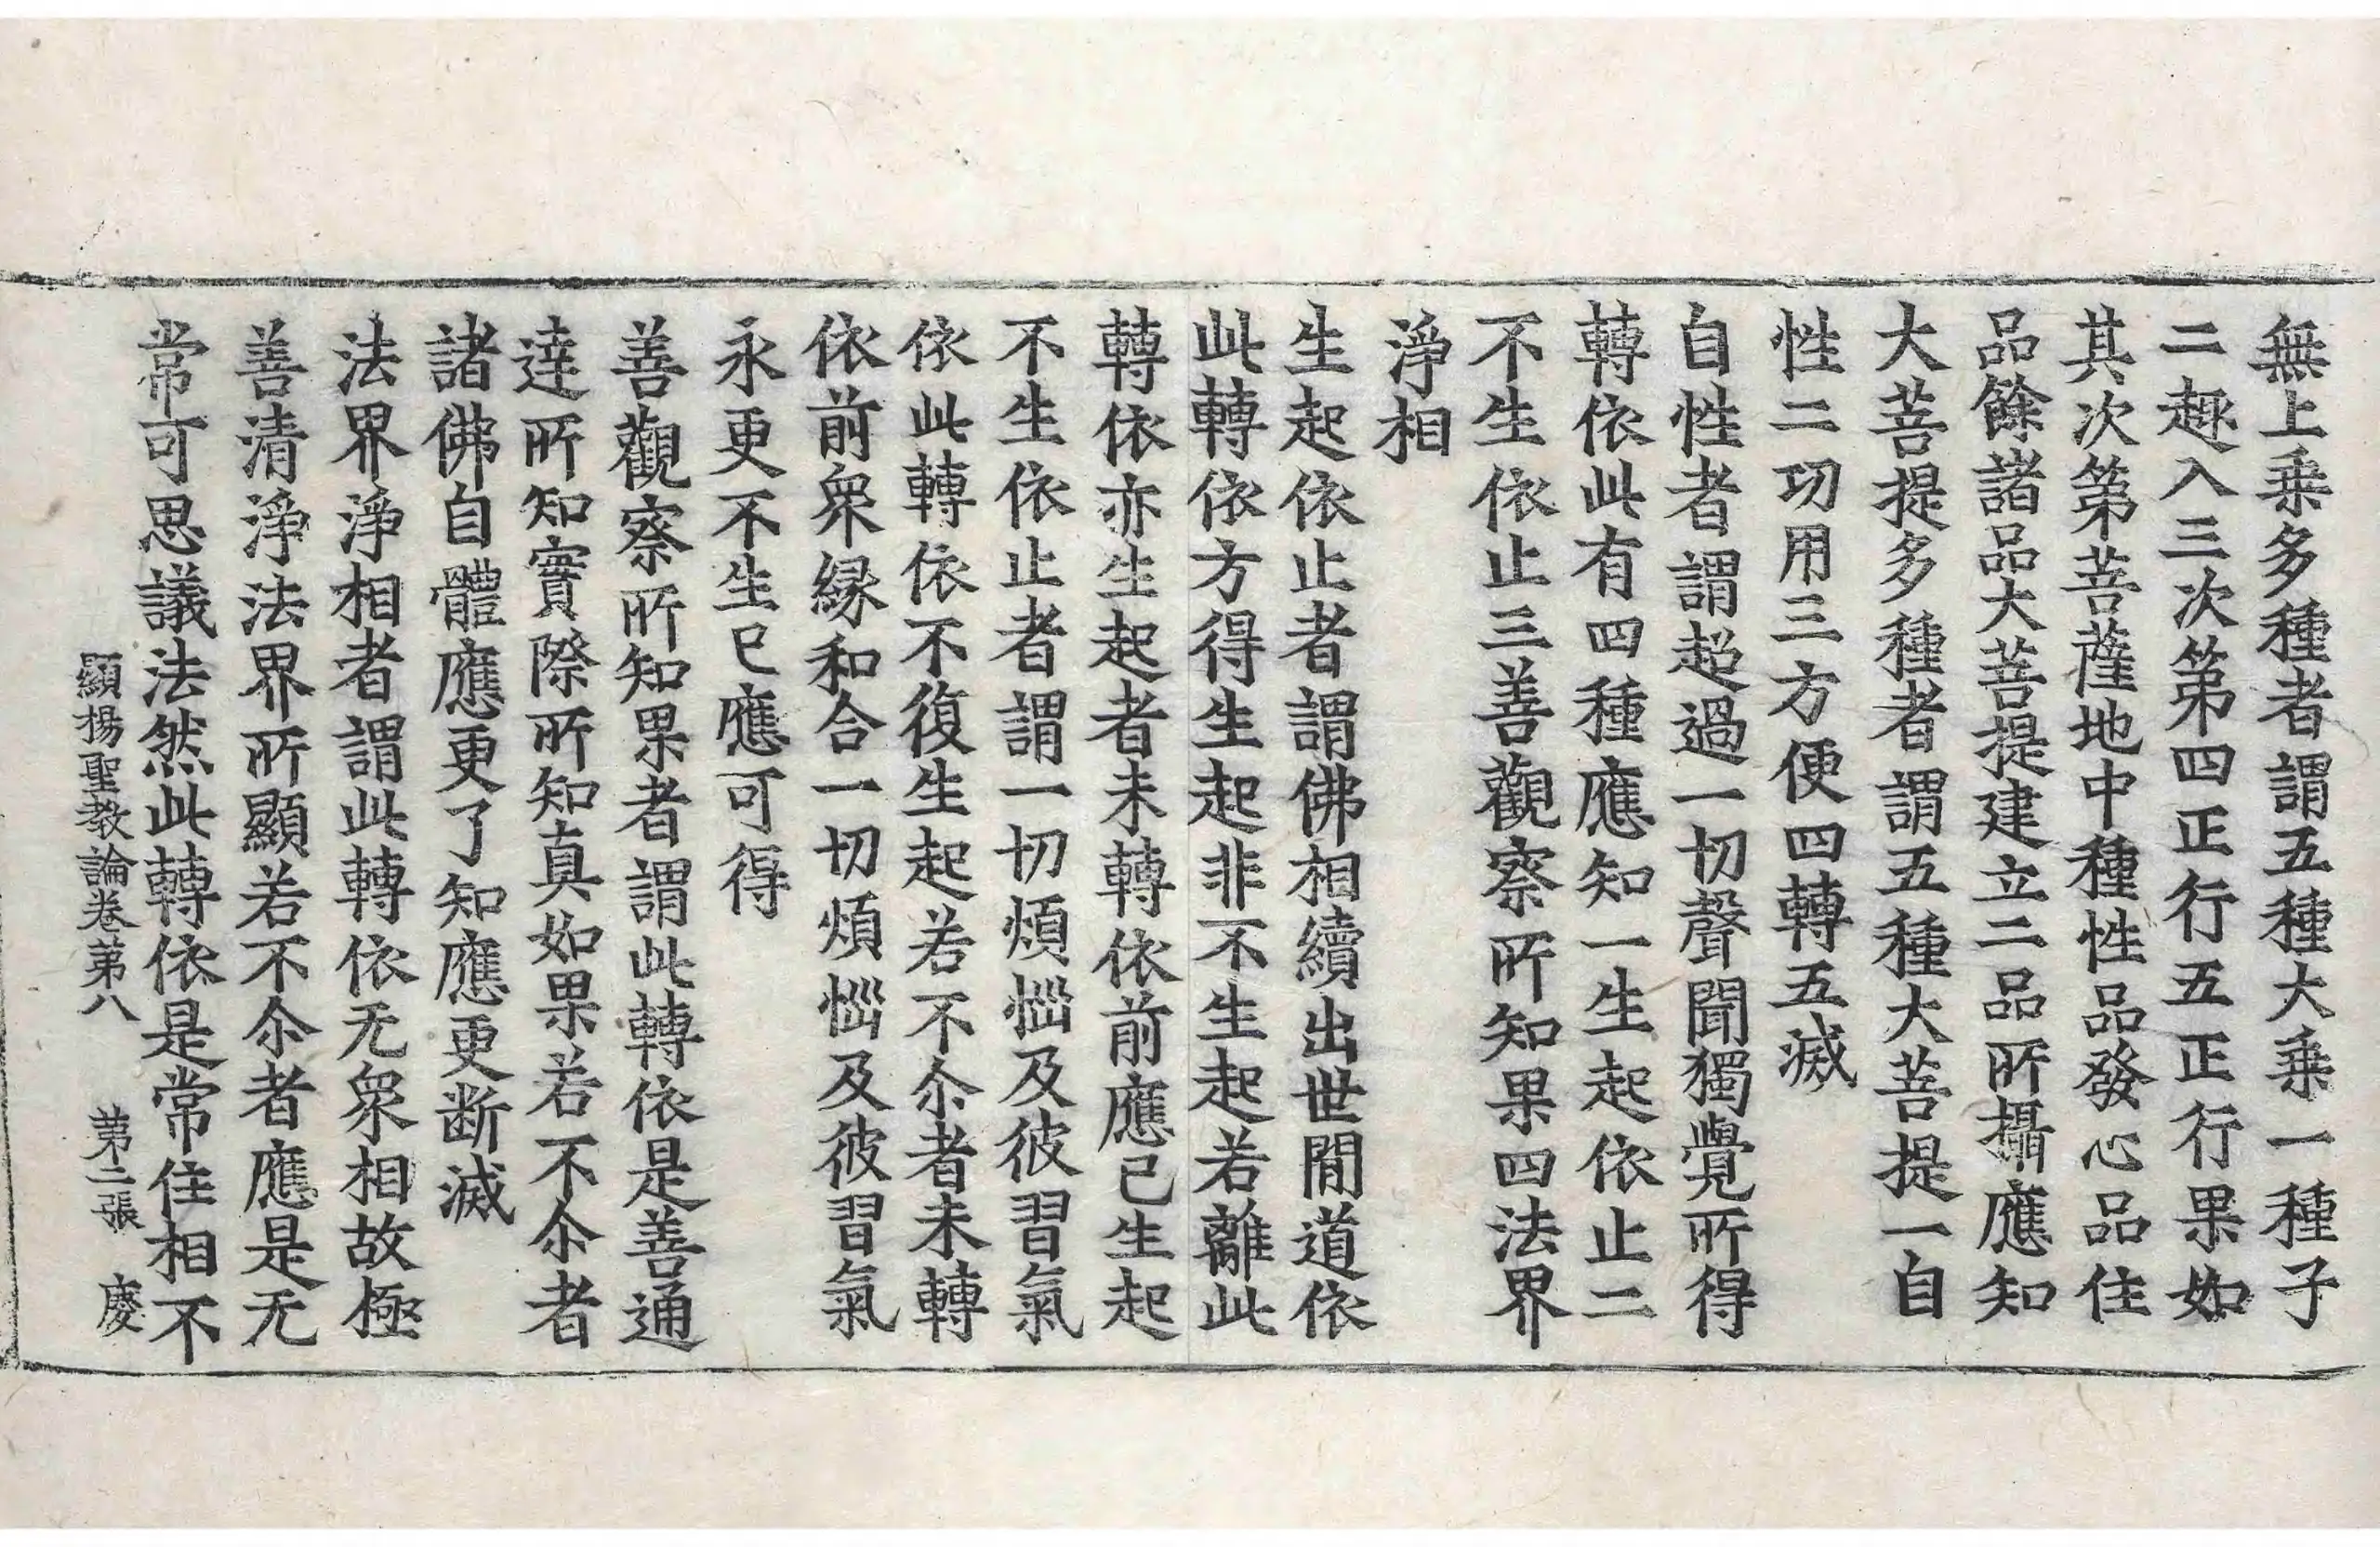 無上乗多種者謂五種大乗一種子
二趣入三次第四正行五正行果如
其次第菩薩地中種性品發心品住
品餘諸品大菩提建立二品所攝應知
大菩提多種者謂五種大菩提一自
性二㓛用三方便四轉五滅
自性者謂超過一切聲聞獨覺所得
轉依此有四種應知一生起依止二
不生依止三善觀察所知果四法界
淨相
生起依止者謂佛相續出世間道依
此轉依方得生起非不生起若離此
轉依亦生起者未轉依前應已生起
不生依止者謂一切煩惱及彼習氣
依此轉依不復生起若不尒者未轉
依前衆緣和合一切煩惱及彼習氣
永更不生已應可得
善觀察所知果者謂此轉依是善通
達所知實際所知真如果若不尒者
諸佛自體應更了知應更断滅
法界淨相者謂此轉依无衆相故極
善清淨法界所顯若不尒者應是无
常可思議法然此轉依是常住相不
顯揚聖教論卷第八 第二張 慶